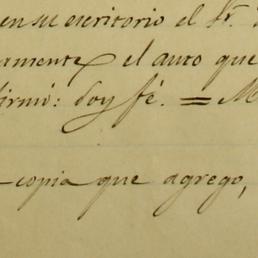 en su escritorio el Sr.
amente el auto que
firmó: doy fé. = M
copia que agrego,